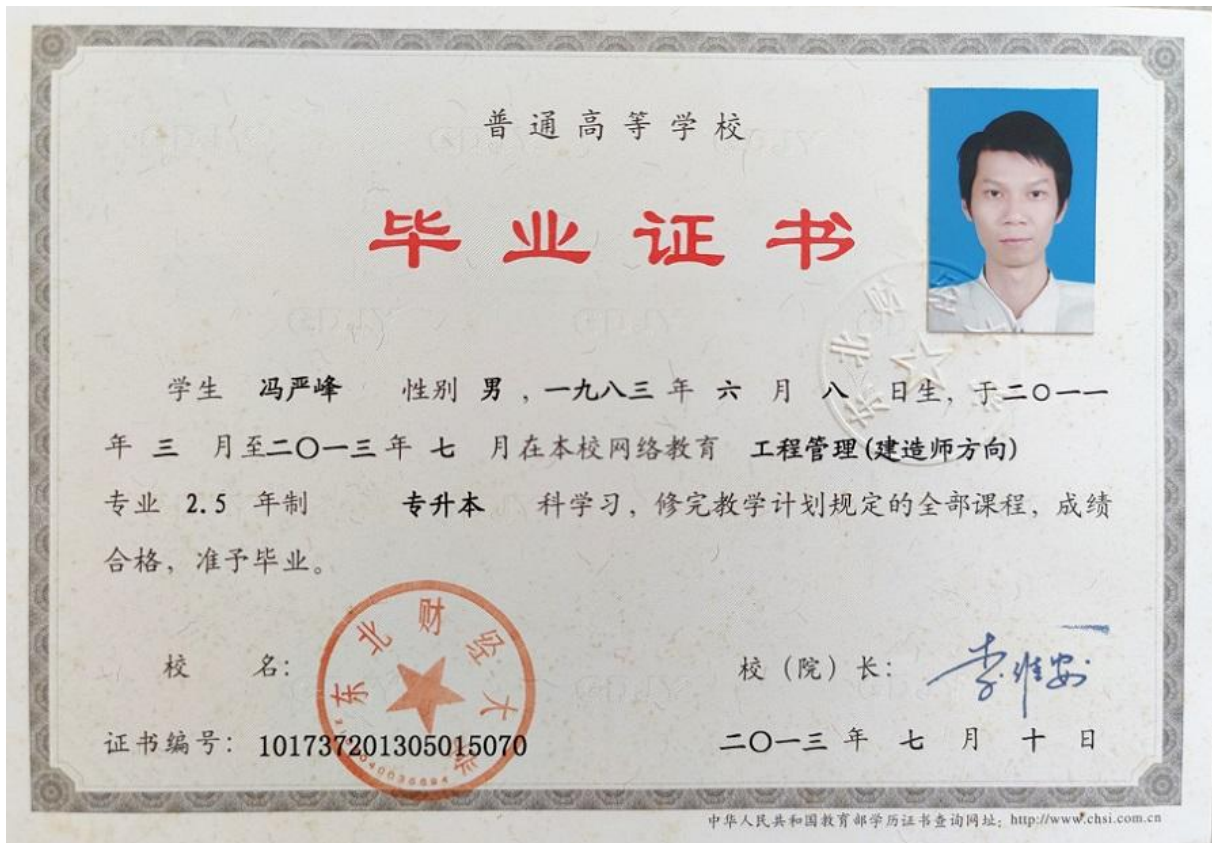 普通高等学校
毕业证书
学生 冯严峰 性别 男，一九八三 年 六 月 八 日生，于二〇一一
年 三 月至二〇一三年 七 月在本校网络教育 工程管理(建造师方向)
专业 2.5 年制 专升本 科学习，修完教学计划规定的全部课程，成绩
合格，准予毕业。
东北财经大学
校 名：
校（院）长： 李维安
证书编号： 101737201305015070
二〇一三 年 七 月 十 日
中华人民共和国教育部学历证书查询网址：http://www.chsi.com.cn